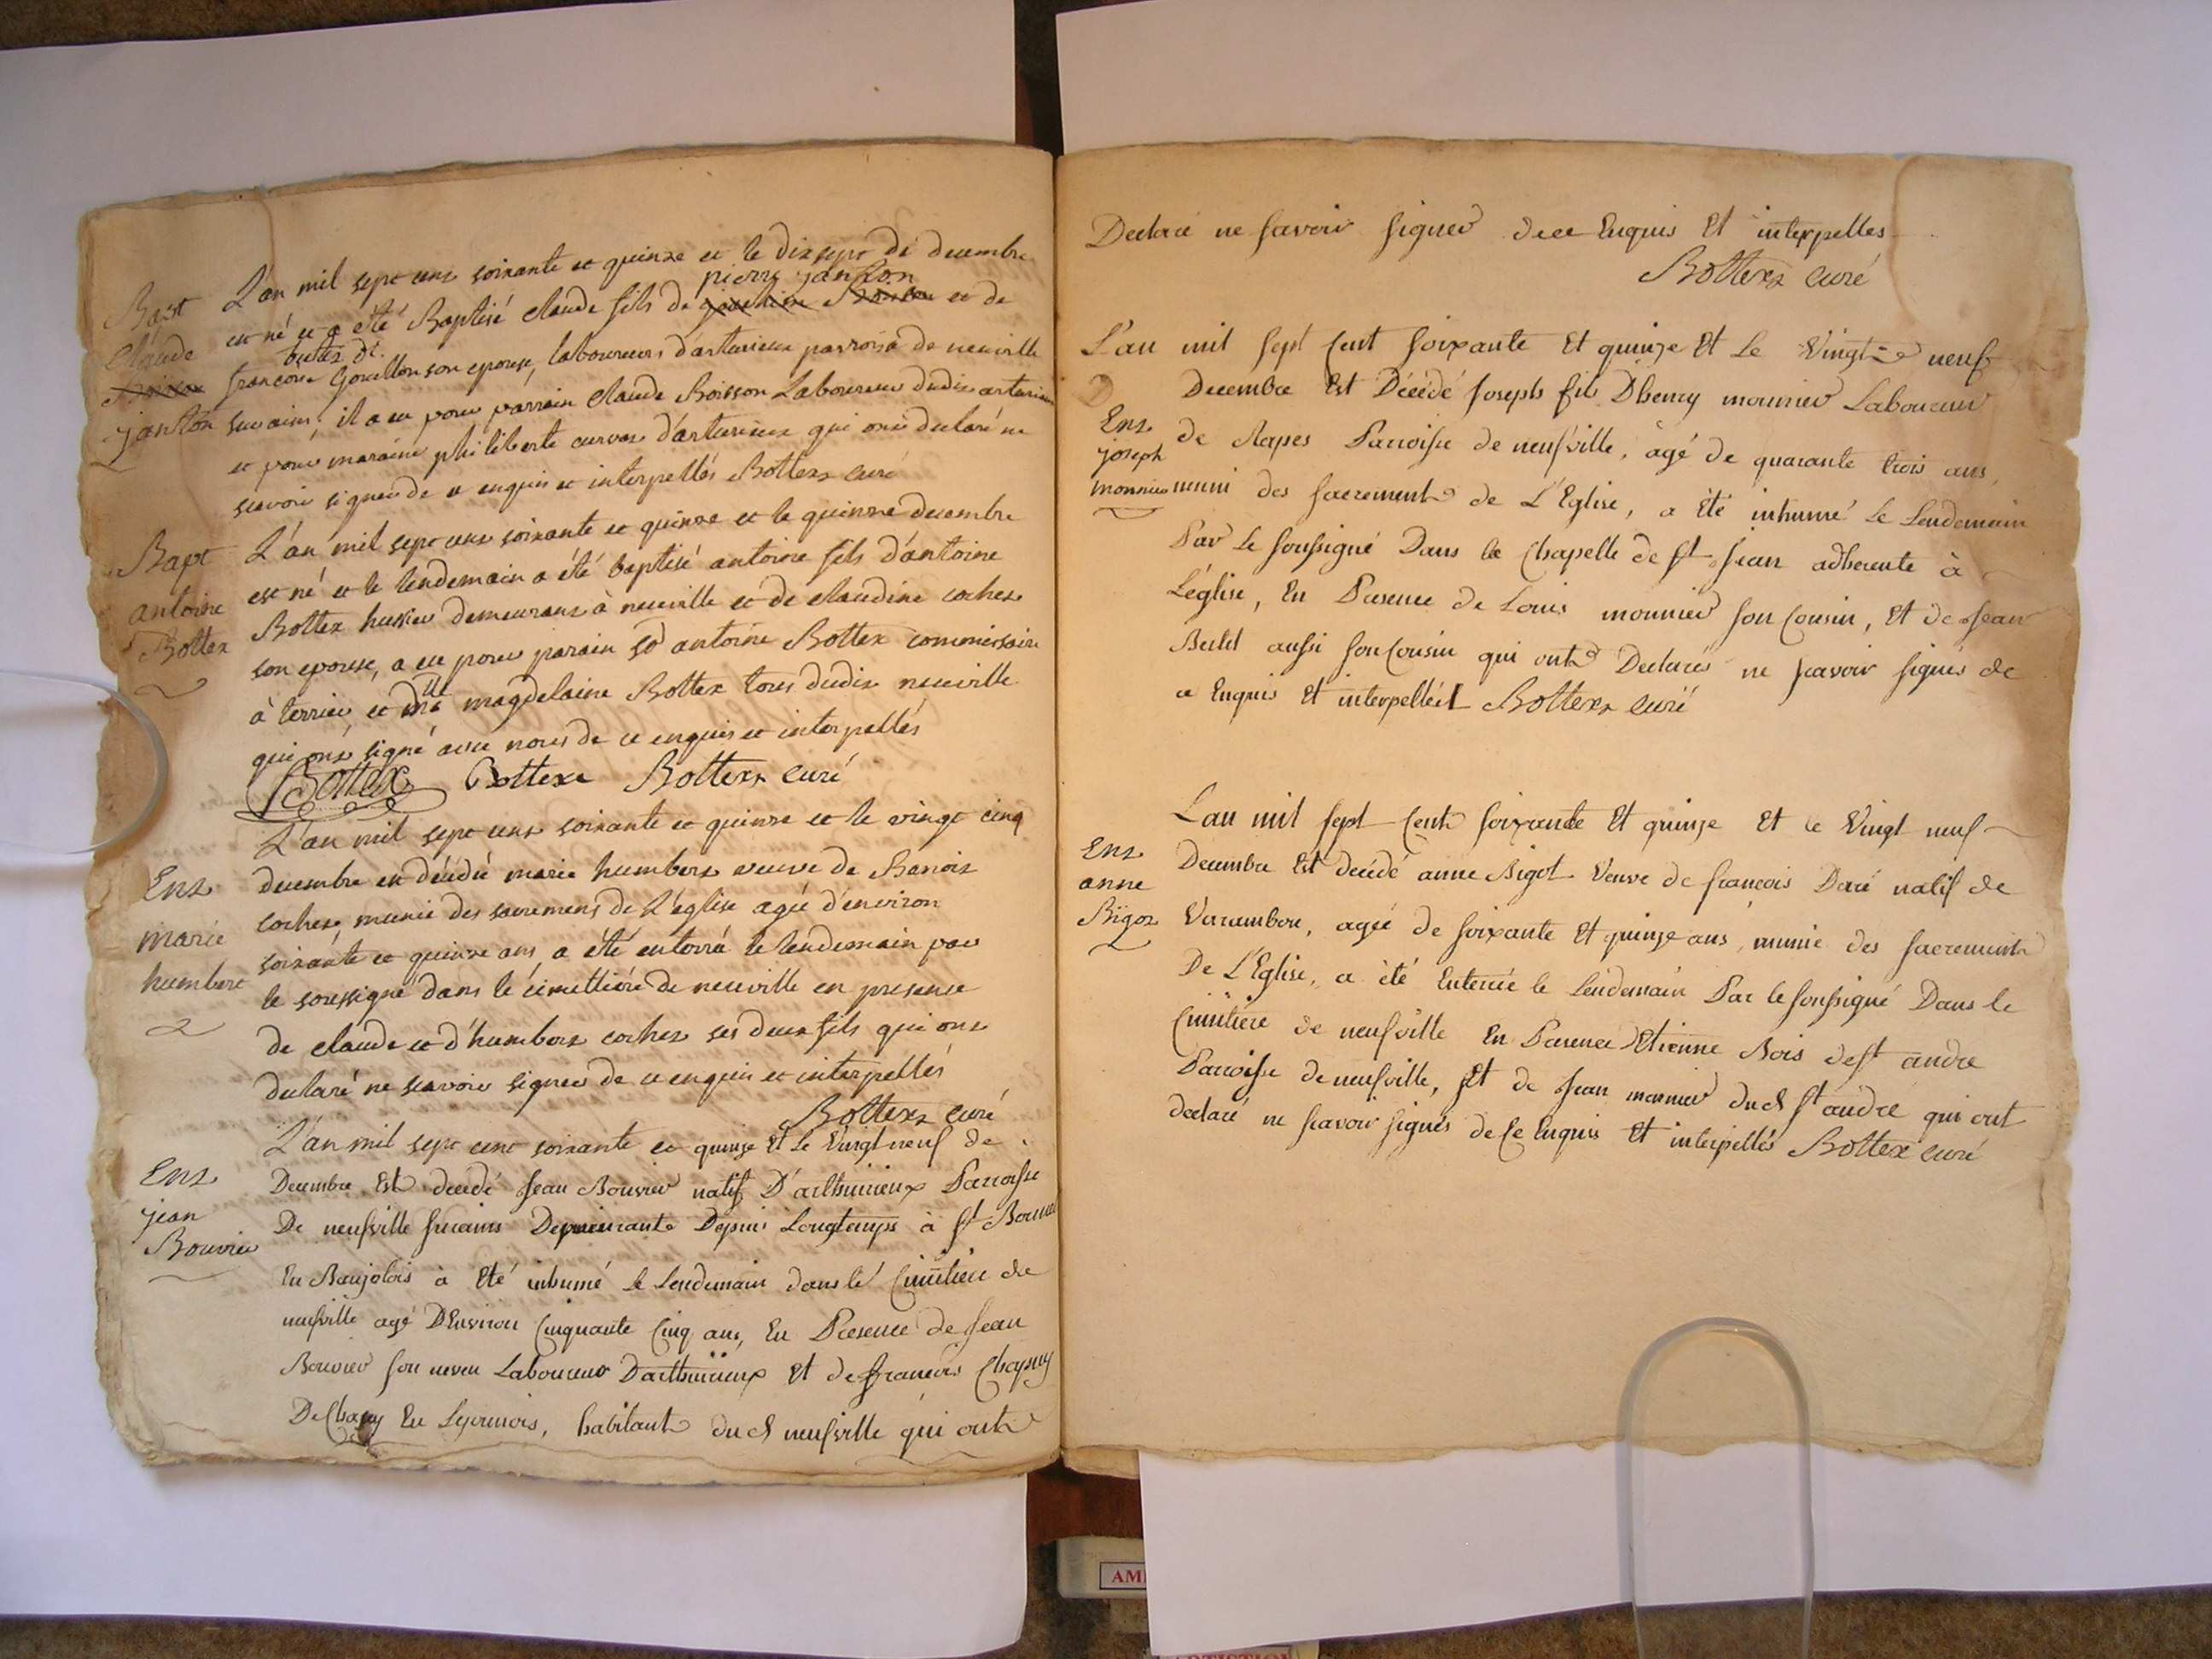 Bapt
Claude
janton
L'an mil sept cent soixante et quinze et le dix sept de decembre
pierre janton
est né et a été Baptisé claude fils de et de
françoise Gouillon son epouse, laboureurs d'arturieux parroise de neuville
sur ains, il a eu pour parrain claude Boisson Laboureur dudit arturieux
et pour maraine philiberte curvat d'arturieux qui ont declaré ne
scavoir signer de ce enquis et interpellés Bottex curé
Bapt
antoine
Bottex
L'an mil sept cent soixante et quinze et le quinze decembre
est né et le lendemain a été baptisé antoine fils d'antoine
Bottex hussier demeurant à neuville et de claudine cochet
son epouse, a eu pour parain sr antoine Bottex commissaire
à terrier et dlle magdelaine Bottex tous dudit neuville
qui ont signé avec nous de ce enquis et interpellés
Bottex Bottexe Bottex curé
Ent
marie
humbert
L'an mil sept cent soixante et quinze et le vingt cinq
decembre est décédé marie humbert veuve de Benoit
cochet, munie des sacremens de l'église agée d'environ
soixante et quinze ans a été enterré le lendemain par
le soussigné dans le cimettiére de neuville en presence
de claude et d'humbert cochet ses deux fils qui ont
declaré ne scavoir signer de ce enquis et interpellés
Bottex curé
Ent
jean
Bouvier
L'an mil sept cent soixante et quinze Et Le Vingt neuf de
Decembre Est decédé Jean Bouvier natif D'arthurieux Parroisse
De neufville sur ains Demeurante Depuis Longtemps à St
En Baujolois à Eté inhumé le Lendemain dans le Cimitiere de
neufville agé D'Environ Cinquante Cinq ans, En Presence de Jean
Bouvier son neveu Laboureur D'arthurieux Et de françois
De En Lyonnois, habitant dud neufville qui ont
Declaré ne savoir signer de ce Enquis Et interpelles
Bottex curé
Ent
joseph
monnier
L'an mil sept cent soixante Et quinze Et Le Vingt neuf
Decembre Est Décédé Joseph fils D'henry monnier Laboureur
de Rapes Parroisse de neufville, agé de quarante trois ans,
muni des sacrements de L'Eglise, a été inhumé Le Lendemain
Par Le soussigné Dans la Chapelle de St Jean adherente à
L'église, En Presence de Louis monnier son Cousin, Et de Jean
aussi son Cousin qui ont Declarés ne scavoir signés de
ce Enquis Et interpellés Bottex curé
Ent
anne
Bigot
L'an mil sept cent soixante Et quinze Et le Vingt neuf
Decembre Est decédé anne Bigot Veuve de françois Daré natif de
Varambon, agée de soixante Et quinze ans, munie des sacrements
De L'Eglise, a été Enterrée le Lendemain Par le soussigné Dans le
Cimitiére de neufville En Presence d'Etienne Bois de St andre
Parroisse de neufville, Et de Jean monnier dud St andre qui ont
declaré ne scavoir signés de Ce Enquis Et interpellés Bottex curé
AM